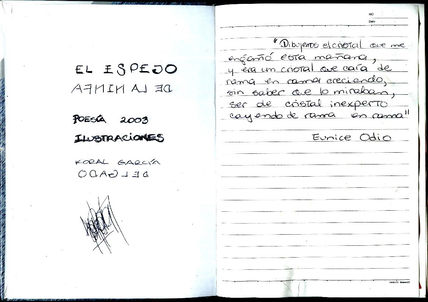 EL ESPEJO
DE LA NINFA
POESÍA 2003
ILUSTRACIONES
KORAL GARCÍA
DELGADO
NO
DATE
"Dibujemos el cristal que me
engañó esta mañana,
y era un cristal que caía de
rama en rama creciendo,
sin saber que lo miraban,
ser de cristal inexperto
cayendo de rama en rama"
Eunice Odio